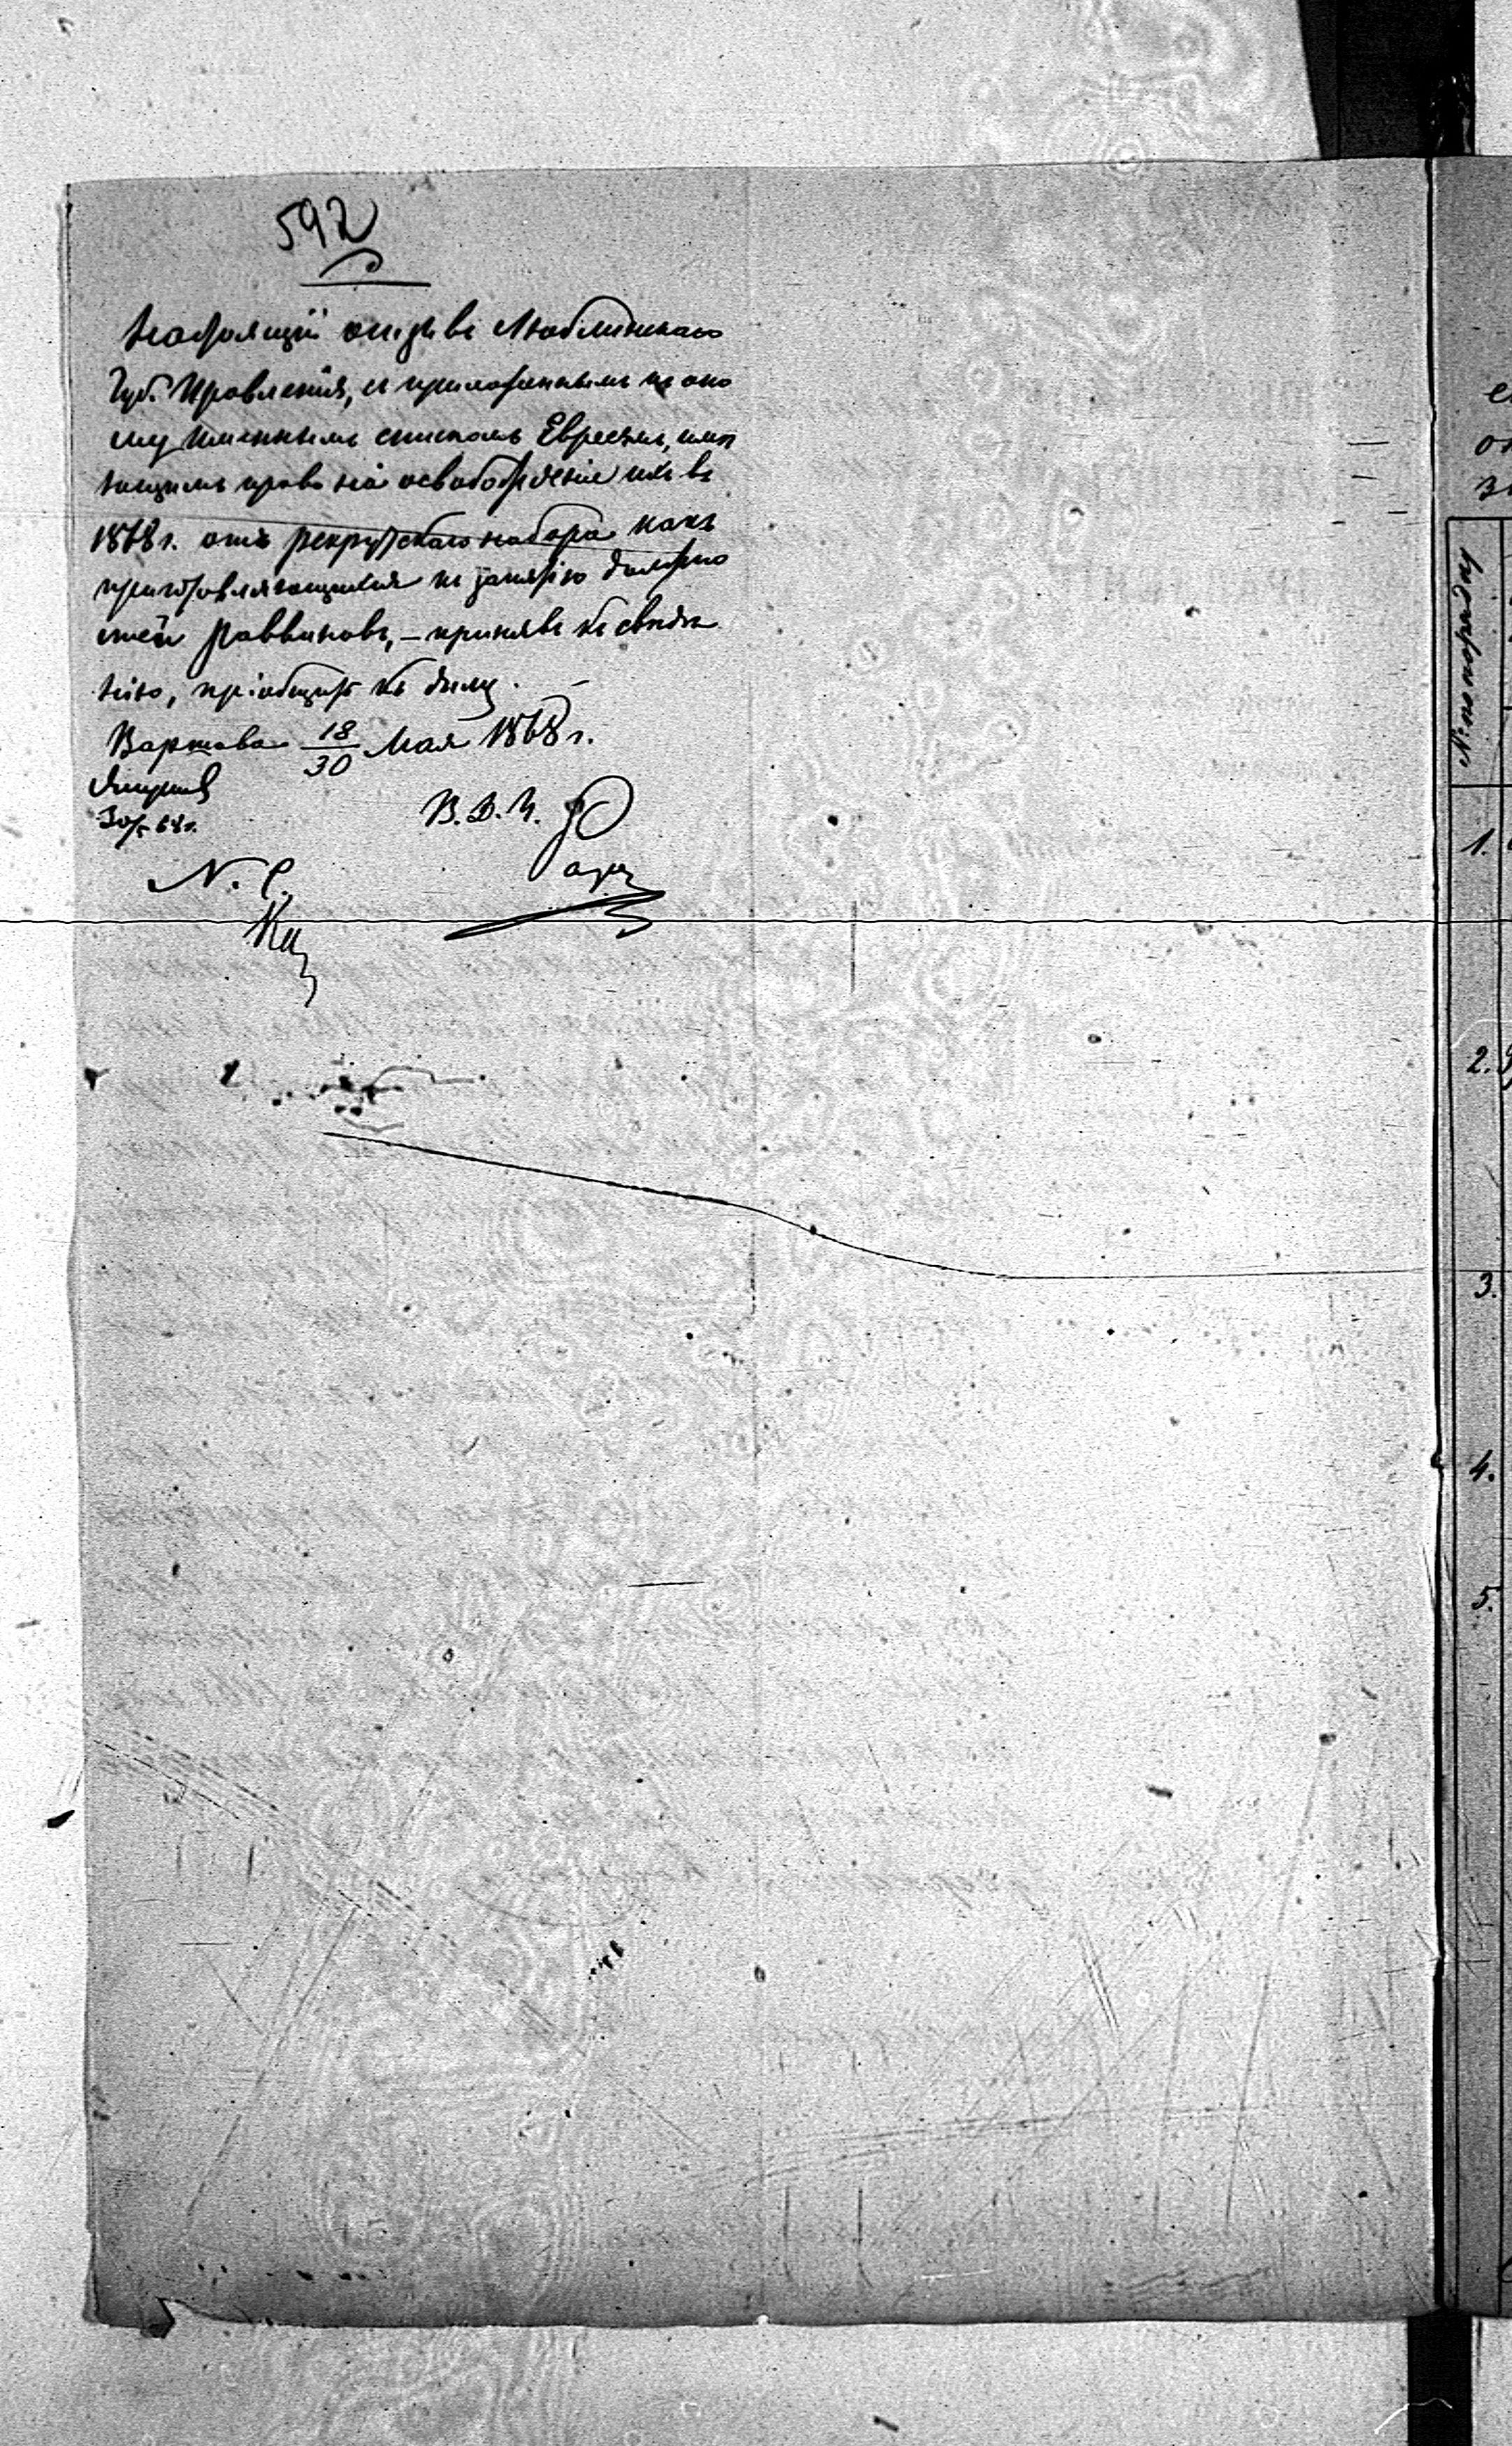 592
Настоящій отзывъ Люблинскаго
Губ. Правленія, съ приложеннымъ къ оно
му именнымъ спискомъ Евреевъ, имѣ
ющимъ право на освобожденіе ихъ въ
1868 г. отъ рекрутскаго набора какъ
приготовляющихся къ занятію должно
стей Раввиновъ, – принявъ къ свѣдѣ
нію, пріобщить къ дѣлу.
Варшава 18/30 Мая 1868 г.
30/5 68 г.
В. Д. Ч.
Н. С.
1.
2.
3.
4.
5.